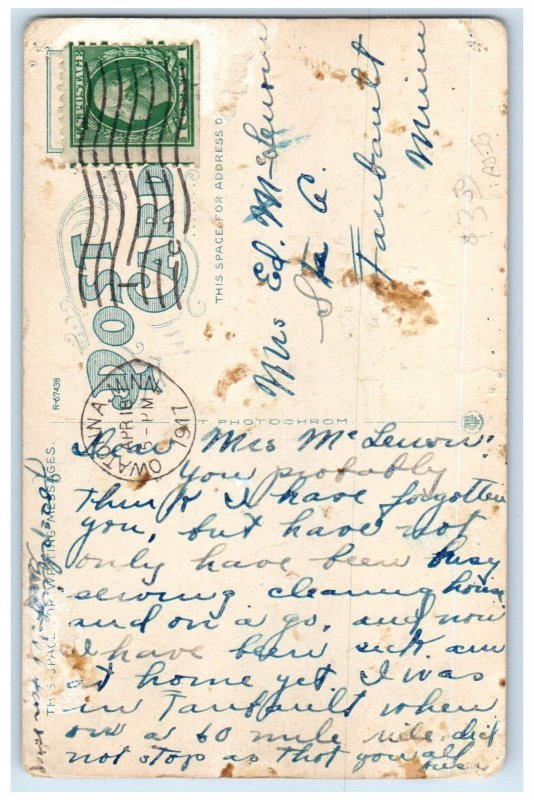 U.S. POSTAGE
POST CARD
THIS SPACE FOR ADDRESS O
Mrs Ed. McLenon
Sta A.
Faribault
Minn
OWATONNA, MINN.
APR 16
5-PM
1917
R-67438
T PHOTOCHROM
THIS SPACE FOR WRITING MESSAGES.
Dear Mrs McLenon:
You probably
think I have forgotten
you, but have not
only have been busy
sewing cleaning house
and on a go, and now
I have been sick am
at home yet. I was
in Faribault when
on a 60 mile ride did
not stop as that you all